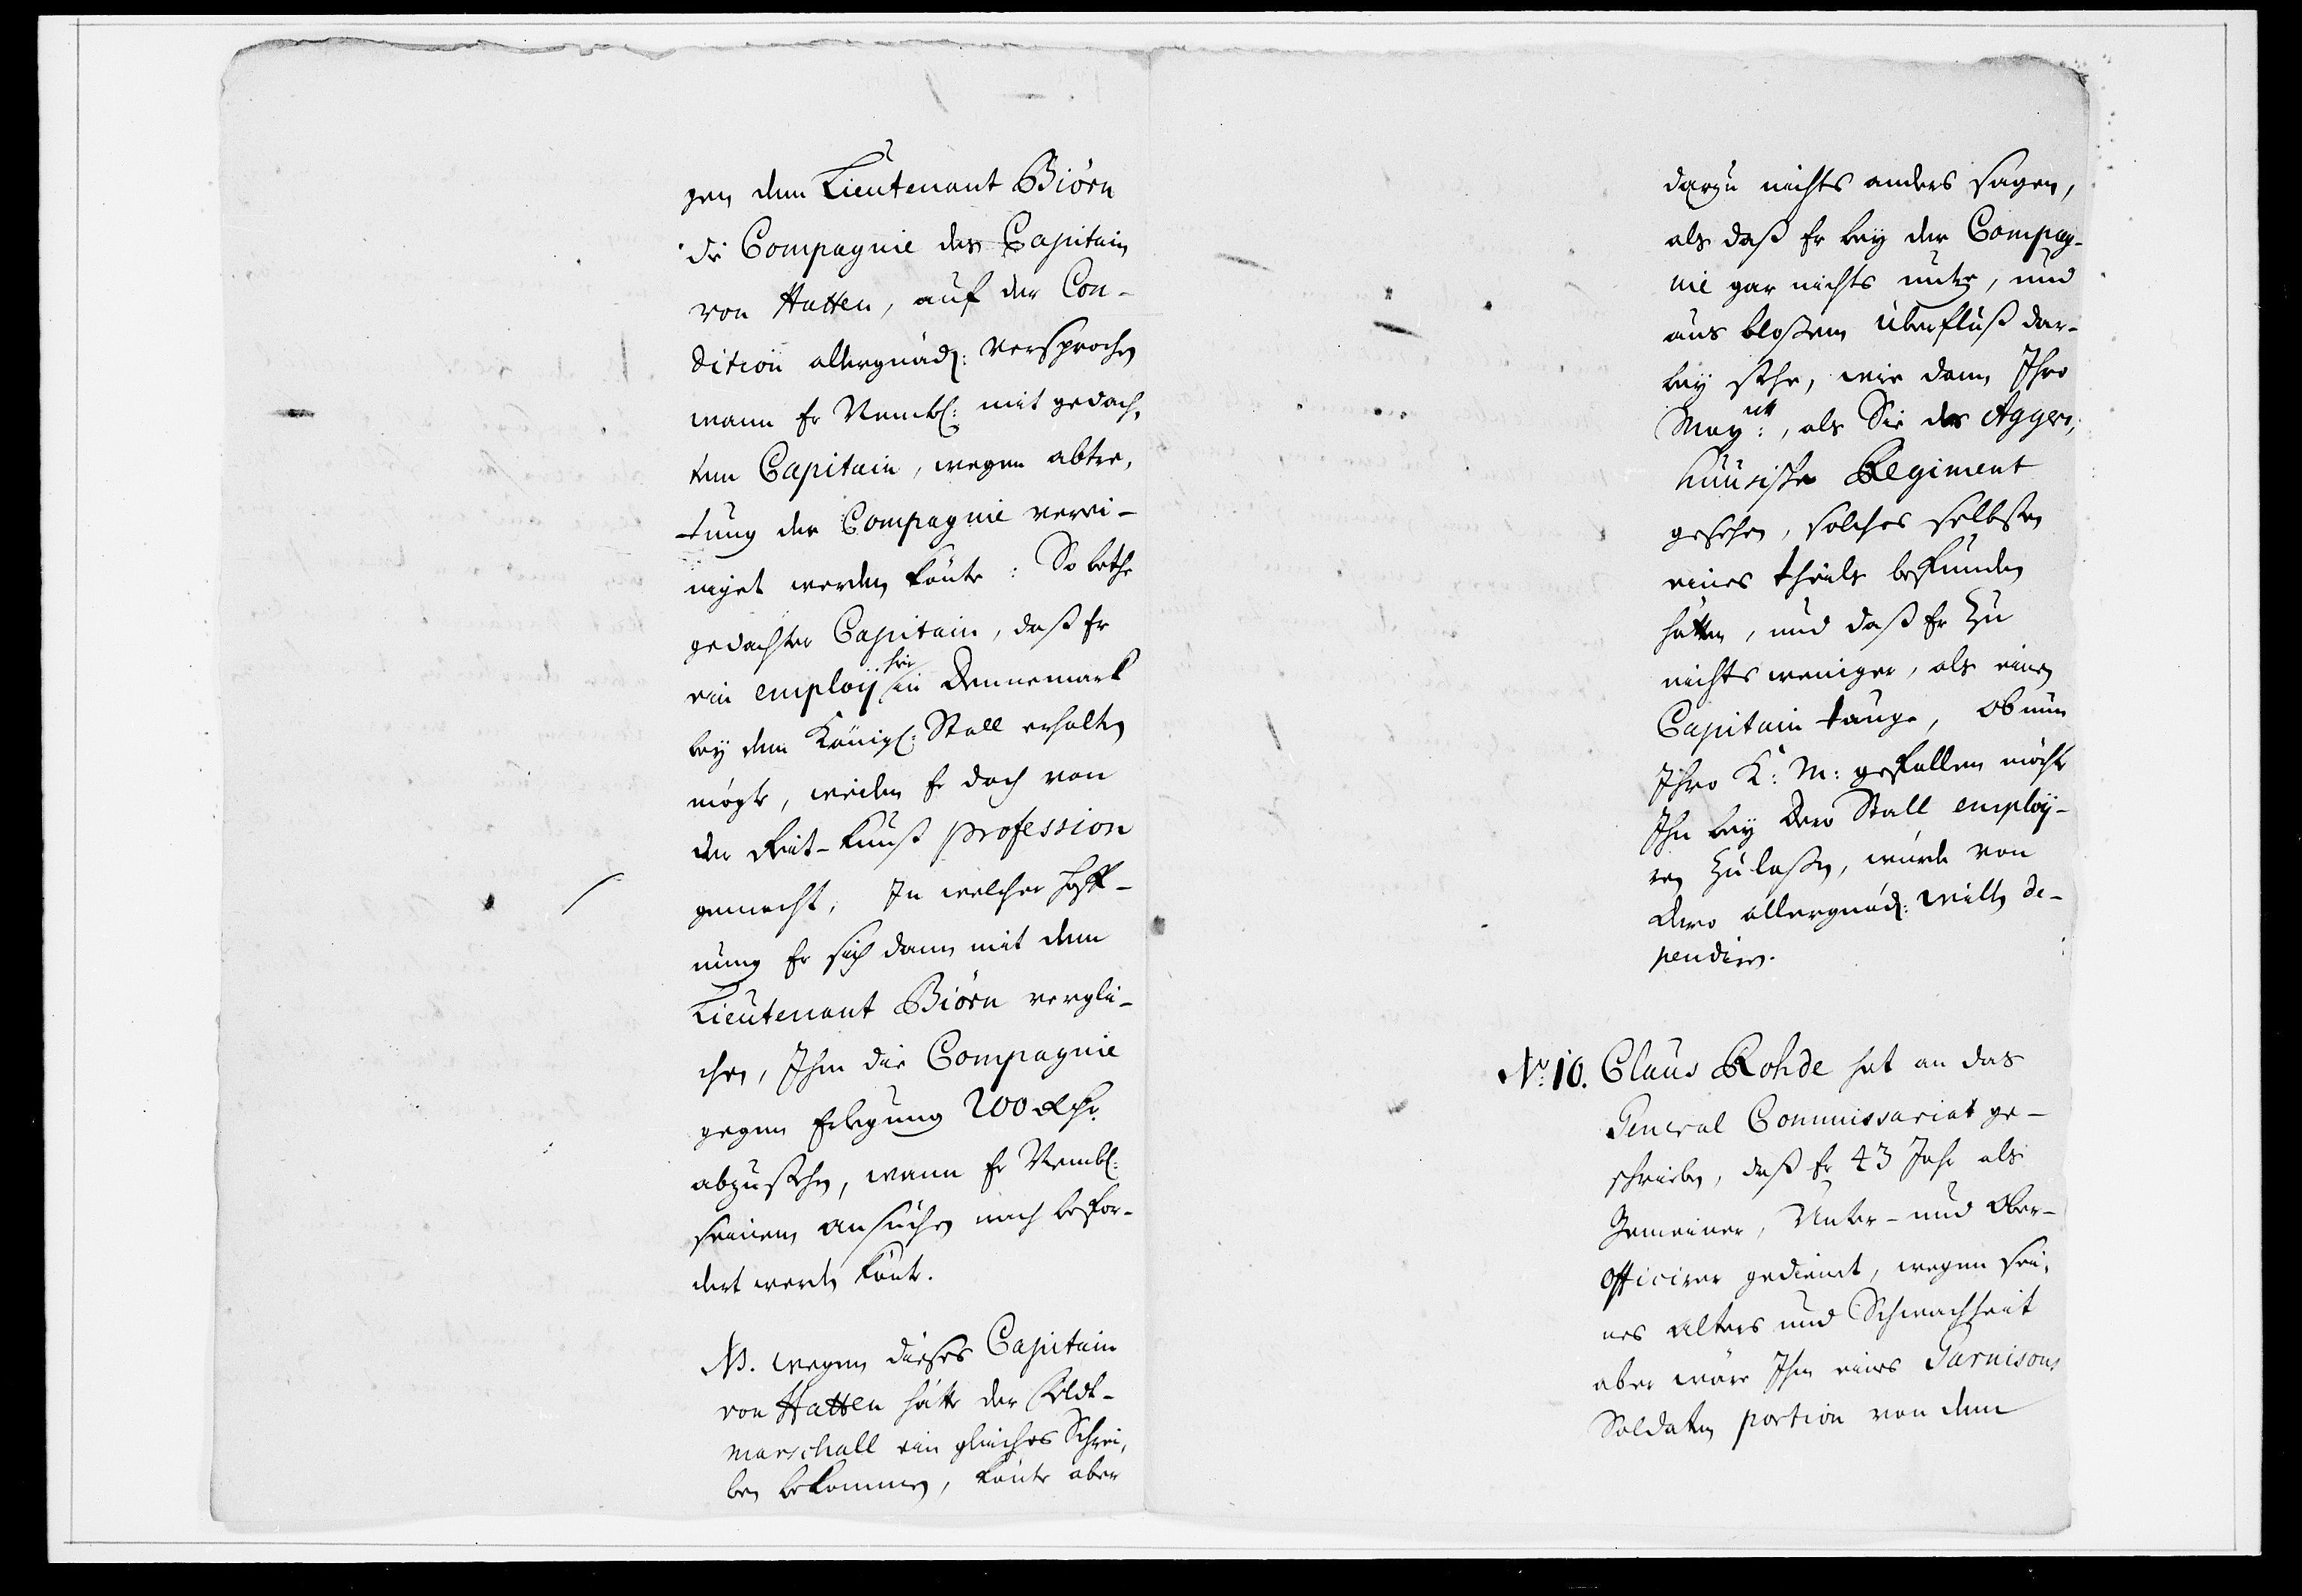 gen dem Lieutenant Biörn
die Compagnie des Capitain
von Hatten, auf der Con-
dition allergnäd: versprochen
wann Er Nembl: mit gedach-
tem Capitain, wegen abtre-
tung der Compagnie verei-
niget werden könte: So bethe
gedachter Capitain, daß Er
ein employ hie in Dennemark
bey dem Königl: Stall erhalten
mögte, weilen Er doch von
der Reit-Kunst profession
gemacht, In welcher Hoff-
nung Er sich dann mit dem
Lieutenant Biörn vergli-
chen, Ihm die Compagnie
gegen Erlegung 200 Rthr.
abzustehen, wann Er Nembl:
seinem ansuchen nach beför-
dert werden könte.
NB. wegen dieses Capitain
von Hatten hätte der Feldt-
marschall ein gleiches Schrei-
ben bekommen, könte aber
darzu nichts anders sagen,
als daß Er bey der Compag-
nie gar nichts nutze, und
aus bloßem Überfluß dar-
bey stehe, wie dann Ihro
May:tt, als Sie das Aggers-
huusische Regiment
gesehen, solches selbsten
eines theils befunden
hätten, und daß Er zu
nichts weniger, als einen
Capitain tauge, Ob nun
Ihro K: M: gefallen möchte
Ihn bey Dero Stall employ-
ren zu laßen, würde von
Dero allergnäd: Willen de-
pendiren.
No: 10. Claus Rohde hat an das
General Commissariat ge-
schrieben, daß Er 43 Jahr als
Gemeiner, Unter- und Ober-
Officirer gedienet, wegen sei-
nes Alters und Schwachheit
aber wäre Ihm eines Garnisons
Soldaten portion von dem